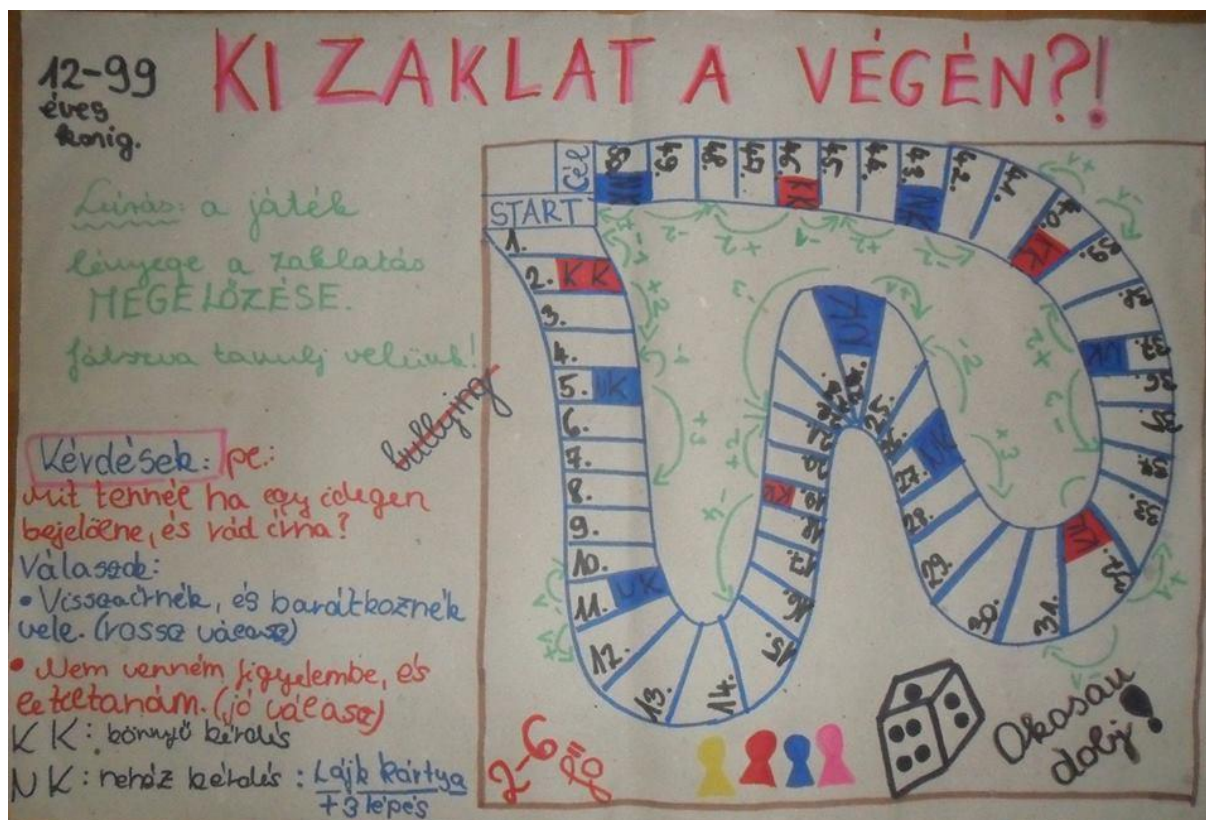 KI ZAKLAT A VÉGÉN?!
12-99
éves
korig.
Leírás: a játék
lényege a zaklatás
MEGELŐZÉSE.
Játszva tanulj velünk!
bullying
Kérdések: pe.:
Mit tennél ha egy idegen
bejelölne, és rád írna?
Válaszok:
• Visszaírnék, és barátkoznék
vele. (rossz válasz)
• Nem venném figyelembe, és
KK: könnyű kérdés
NK: nehéz kérdés: Lájk kártya
+3 lépés
START
Cél
1.
2. KK
3.
4.
5. NK
6.
7.
8.
9.
10.
11. NK
12.
13.
14.
15.
16.
17.
18.
19. KK
20.
21.
25.
27.
28.
29.
30.
31.
32. KK
33.
35.
36.
37. NK
38.
39.
40. KK
41.
42.
43. NK
44.
45.
46. KK
47.
48.
49.
50. NK
2-6 fő
Okosan
dobj!